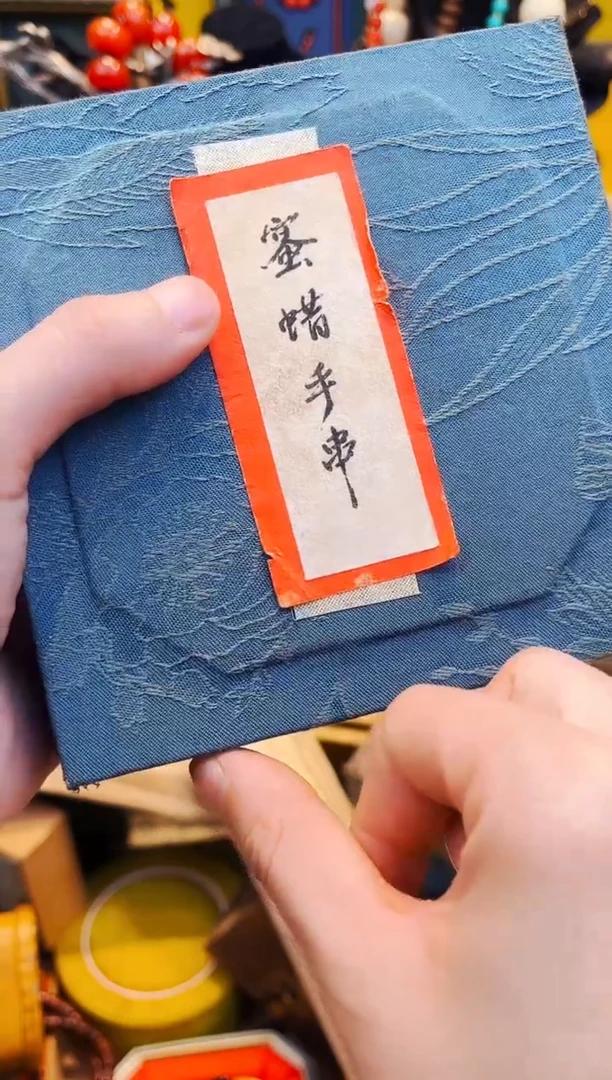 蜜蜡手串